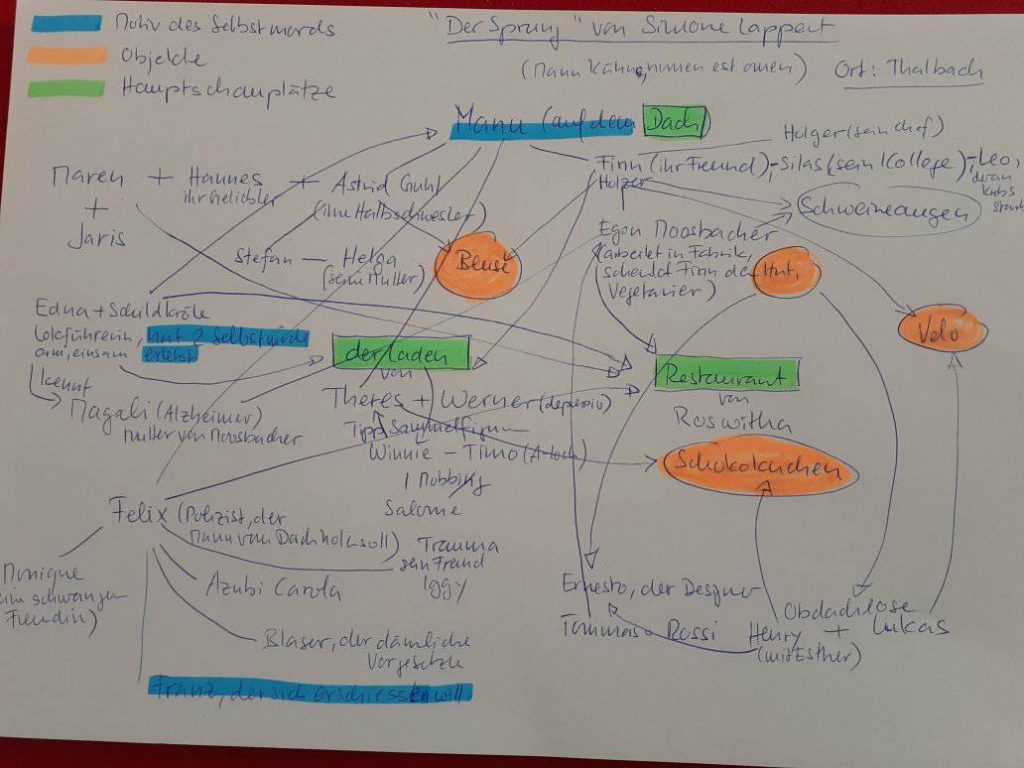 Motiv des Selbstmords
Objekte
Hauptschauplätze
"Der Sprung" von Simone Lappert
(Manu Kühne, nomen est omen)
Ort: Thalbach
Manu (auf dem Dach)
Holger (sein Chef)
Finn (ihr Freund) - Silas (sein Kollege) - Leo,
Holzer
der an
Krebs
starb
Schweineaugen
Maren + Hannes + Astrid Guhl
ihr Geliebter
(ihre Halbschwester)
+
Jaris
Stefan — Helga
(seine Mutter)
Bluse
Egon Moosbacher
(arbeitet in Fabrik,
schenkt Finn den Hut,
Vegetarier)
Velo
Edna + Schildkröte
Lokführerin, hat 2 Selbstmorde
arm, einsam erlebt
kennt
Magali (Alzheimer)
Mutter von Moosbacher
der Laden
von
Theres + Werner (depressiv)
Sammelfiguren
Winnie - Timo
1 Mobbing
Salome
Restaurant
von
Roswitha
Schokokuchen
Felix (Polizist, der
Manu vom Dach holen soll)
Trauma
sein Freund
Iggy
Monique
schwangere
Freundin)
Azubi Carola
Blaser, der dämliche
Vorgesetzte
Franz, der sich erschiessen will
Ernesto, der Designer
Tommaso Rossi
Obdachlose
Henry + Lukas
(mit Esther)